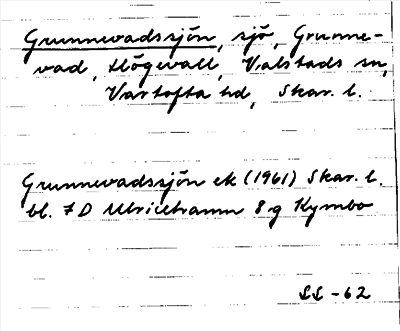 Grunnevadssjön, sjö, Grunne-
vad, Högevall, Valstads sn,
Vartofta hd, Skar. l.
Grunnevadssjön ek (1961) Skar. l.
bl. 7D Ulricehamn 8 g Kymbo
SS -62